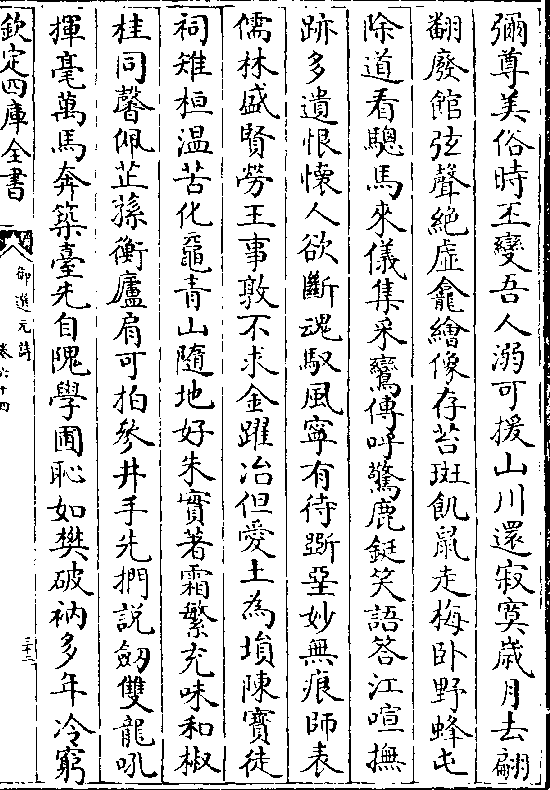 彌尊美俗時丕變吾人溺可援山川還寂寞歲月去翩
翻廢館弦聲絶虛龕繪像存苔斑飢鼠走梅卧野蜂屯
除道看驄馬來儀集采鸞傳呼驚鹿鋌笑語答江喧撫
跡多遺恨懷人欲斷魂馭風寧有待斲堊妙無痕師表
儒林盛賢勞王事敦不求金躍冶但愛土為塤陳寶徒
祠雉桓温苦化黿青山隨地好朱實著霜繁充味和椒
桂同馨佩芷蓀衡廬肩可拍參井手先捫説劒雙龍吼
揮毫萬馬奔築臺先自隗學圃恥如樊破衲多年冷窮
欽定四庫全書
御選元詩
卷六十四
三十二